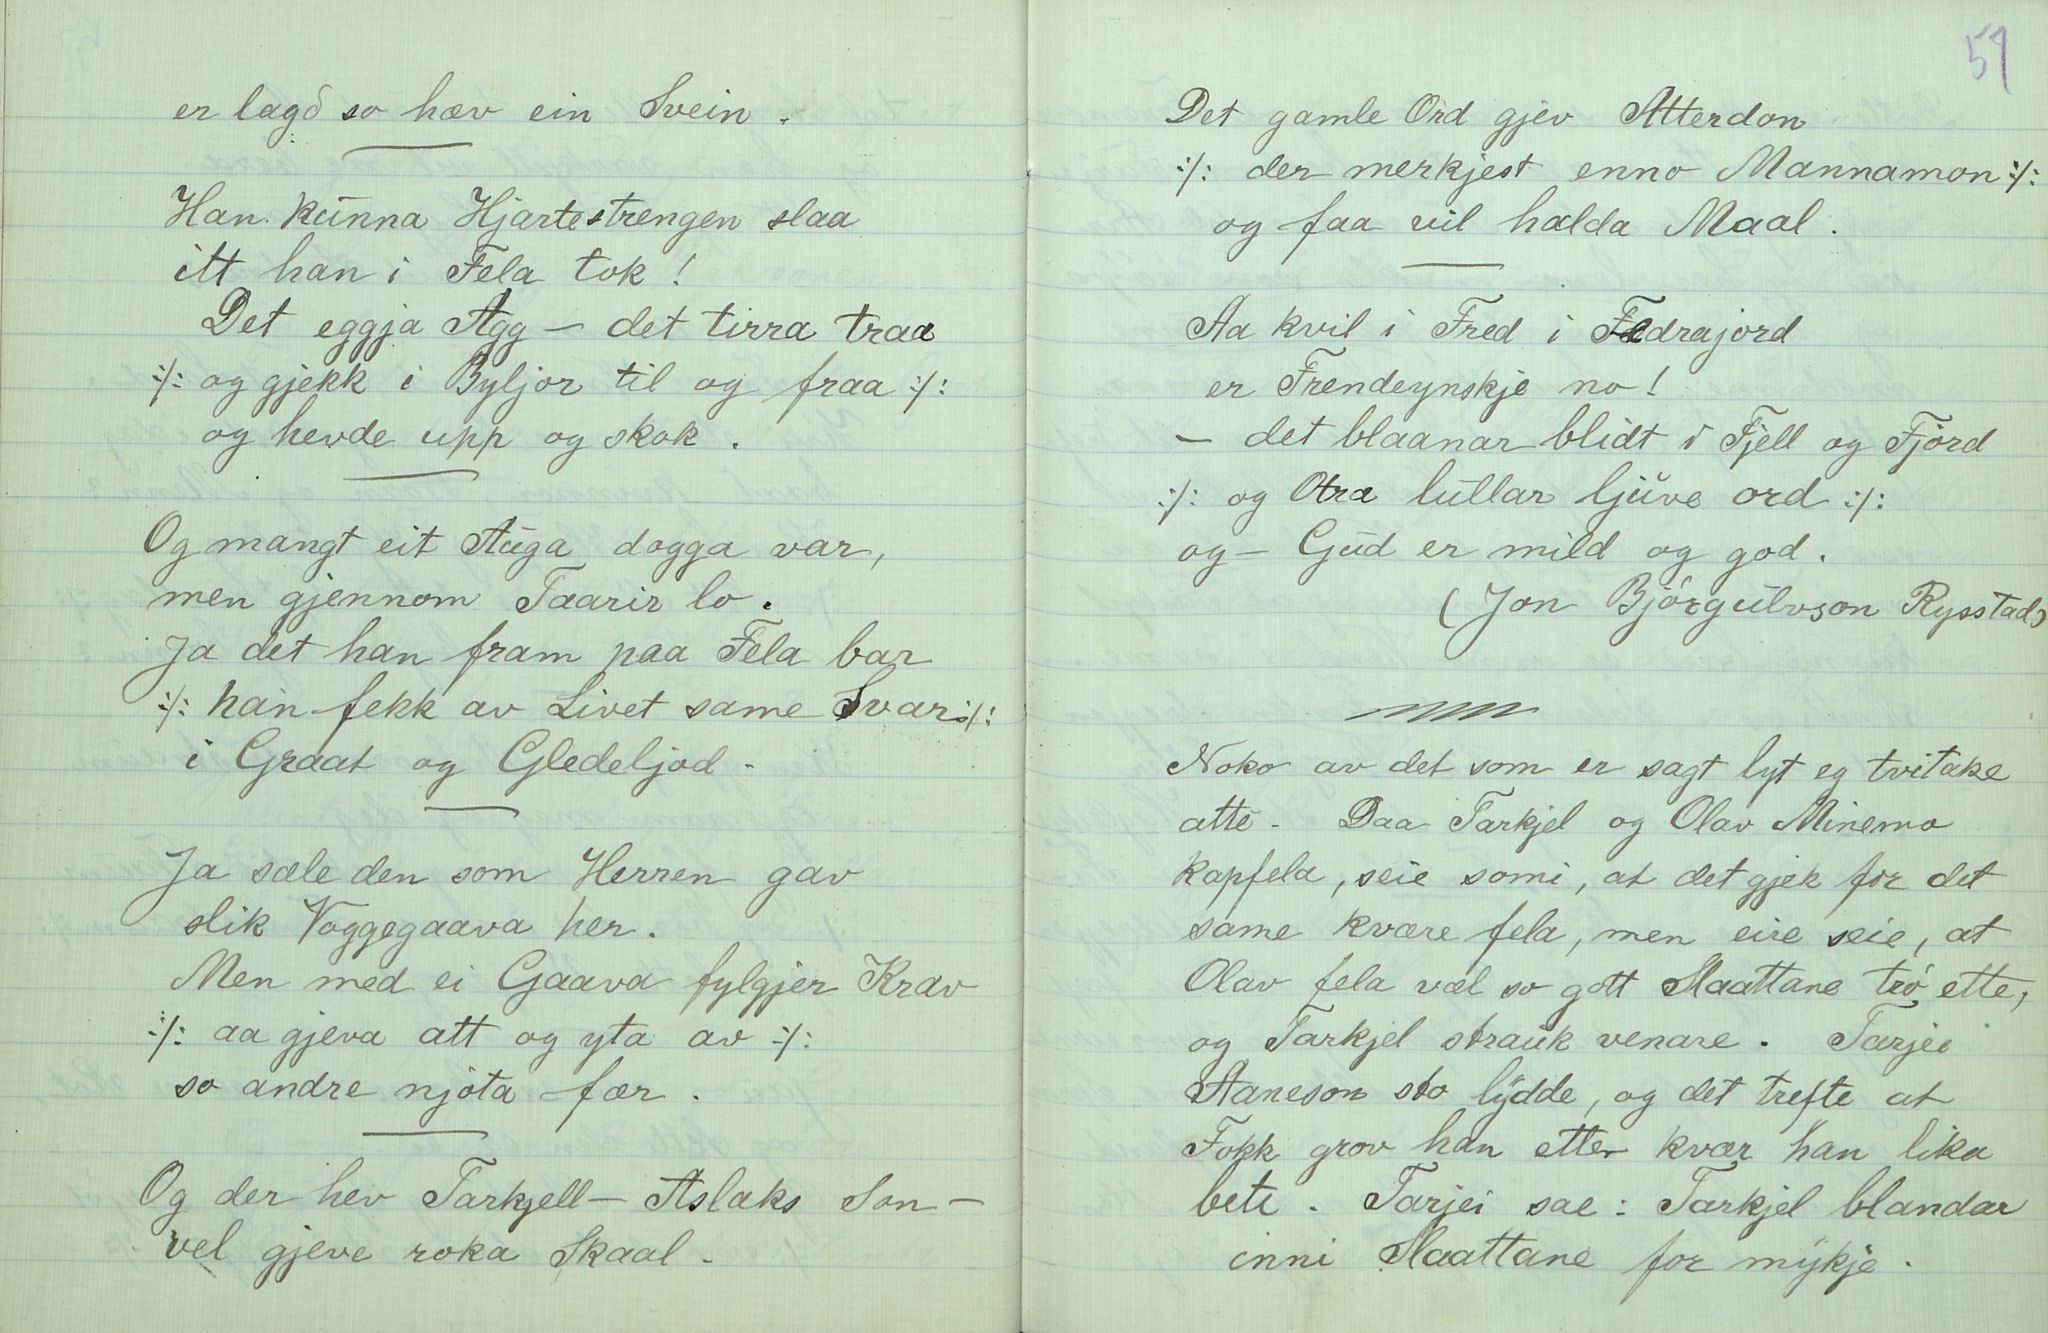 er lagd so hæv ein Svein.
Han kunna Hjartestrengen slaa
itt han i Fela tok!
Det eggja Agg - det tirra traa
:/: og gjekk i Byljor til og fraa :/:
og hevde upp og skok.
Og mangt eit Auga dogga var,
men gjennom Taarir lo.
Ja det han fram paa Fela bar
:/: han fekk av Livet same Svar :/:
i Graat og Gledeljod -
Ja sæle den som Herren gav
slik Voggegaava her.
Men med ei Gaava fylgjer Krav
:/: aa gjeva att og yta av :/:
so andre njota fær.
Og der hev Tarkjell - Aslaks Son -
vel gjeve roka Skaal.
59
Det gamle Ord gjev Atterdon
:/: der merkjest enno Mannamon :/:
og faa vil halda Maal.
Aa kvil i Fred i Fedrajord
er Frendeynskje no!
- det blaanar blidt i Fjell og Fjord
:/: og Otra lullar ljuve ord :/:
og - Gud er mild og god.
(Jon Björgulvson Rysstad)
Noko av det som er sagt lyt eg tvitake
atte. Daa Tarkjel og Olav Minemo
kapfela, seie somi, at det gjek for det
same kvære fela, men eire seie, at
Olav fela væl so gott Slaattane trö ette,
og Tarkjel strauk venare. Tarjei
Aaneson sto lydde, og det trefte at
Fokk grov han etter kvær han lika
bete. Tarjei sae: Tarkjel blandar
inni Slaattane for mykje.